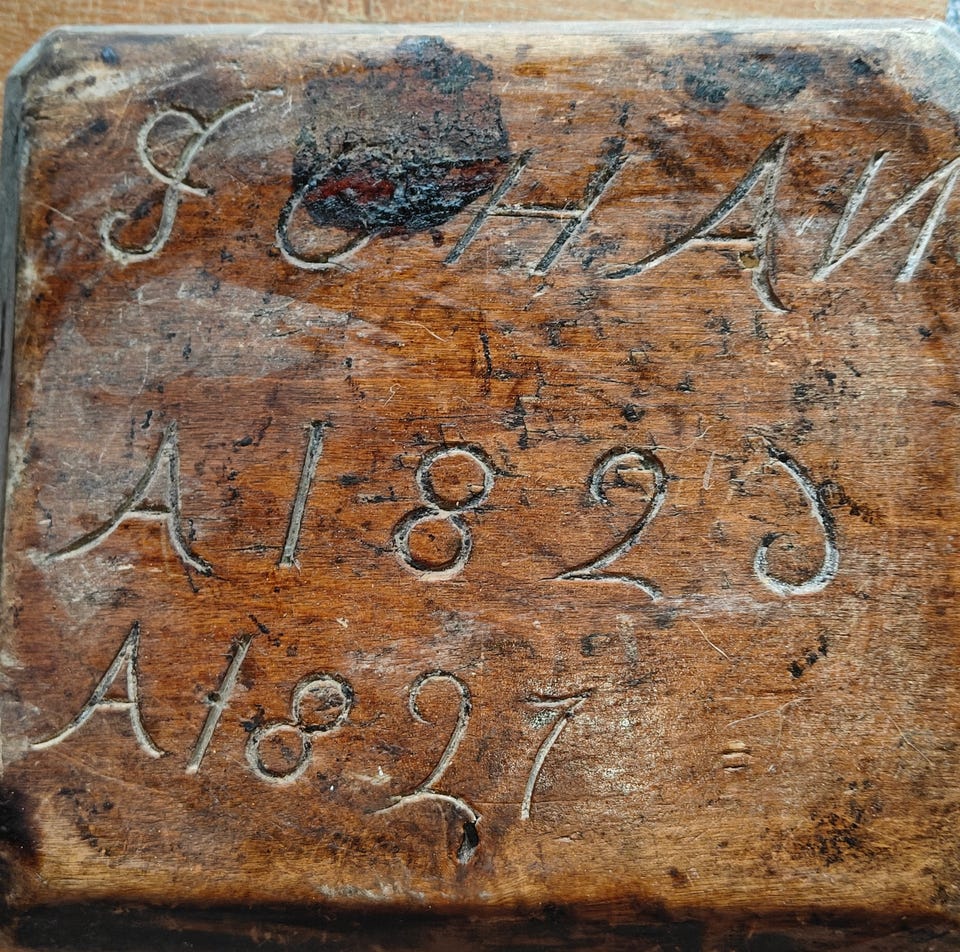 JOHAN
A1825
A1827